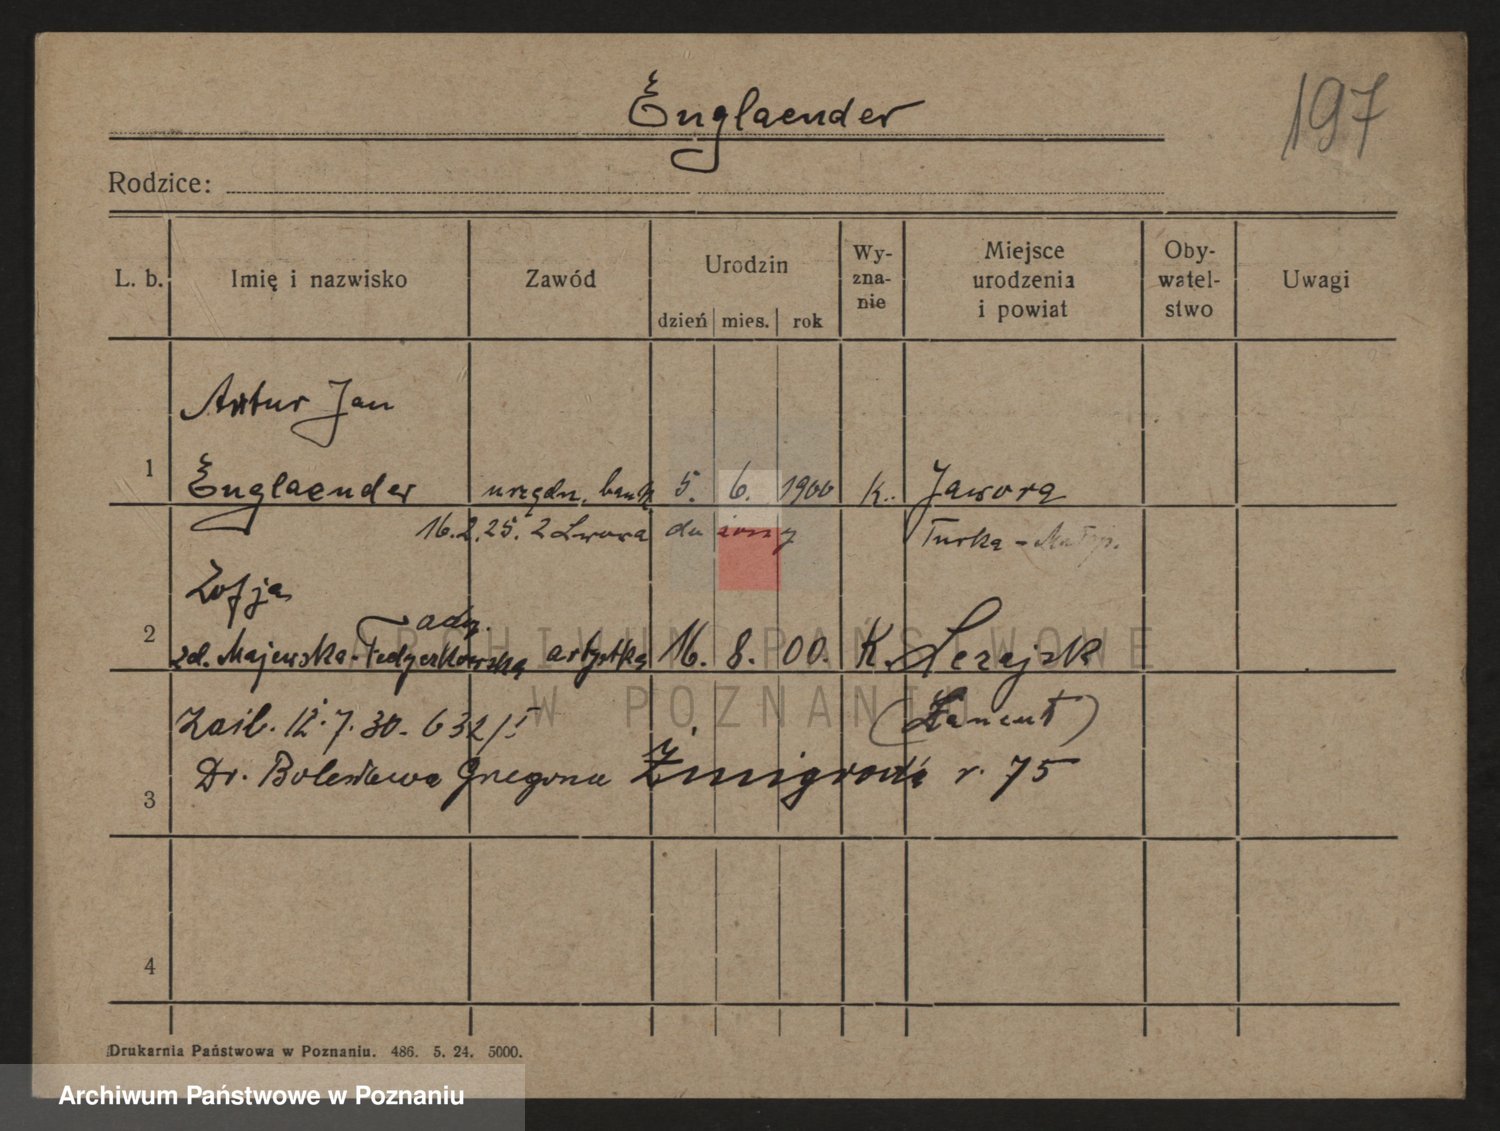 Englaender
197
Rodzice:
L. b. Imię i nazwisko Zawód Urodzin Wy-zna-nie Miejsce urodzenia i powiat Oby-watel-stwo Uwagi
dzień mies. rok
Artur Jan
1 Englaender urzędn. bank. 5. 6. 1900 K. Jawora
16.2.25. z Lwowa do żony Turka - Małop.
Zofja
2 zd. Majewska- artystka 16. 8. 00. K. Leżajsk
ARCHIWUM PAŃSTWOWE
W POZNANIU
Zaśl. 12.7.30. 632/I (Łańcut)
Dr. Bolesława Żmigrod r. 75
3
4
Drukarnia Państwowa w Poznaniu. 486. 5. 24. 5000.
Archiwum Państwowe w Poznaniu